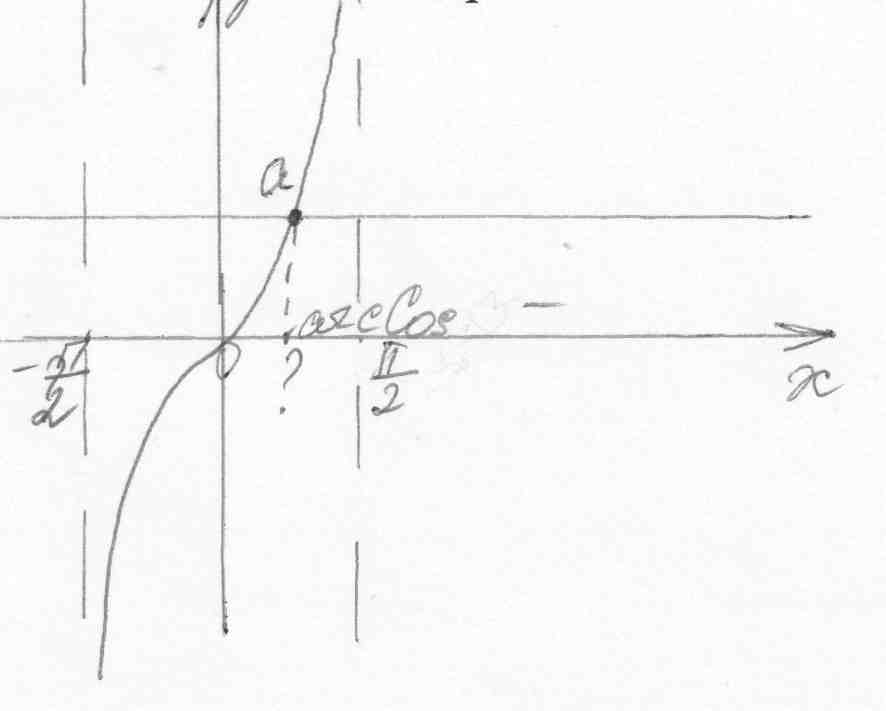 y
a
arcCos –
-π/2 0 ? π/2 x